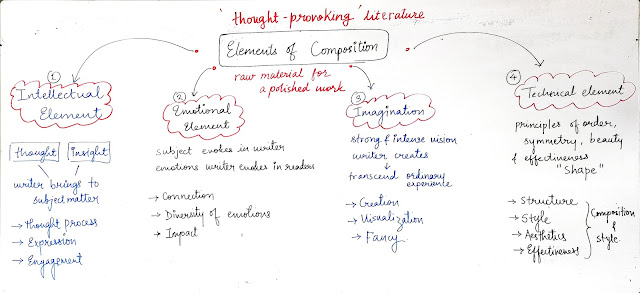 'thought-provoking' literature
Elements of Composition
raw material for
a polished work
1
Intellectual
Element
thought insight
writer brings to
subject matter
→ Thought process
→ Expression
→ Engagement
2
Emotional
Element
subject evokes in writer
emotions writer evokes in readers
→ Connection
→ Diversity of emotions
→ Impact
3
Imagination
strong & intense vision
writer creates
transcend ordinary
experience
→ Creation
→ Visualization
→ Fancy
4
Technical element
principles of order,
symmetry, beauty
& effectiveness
"Shape"
→ Structure
→ Style
→ Aesthetics
→ Effectiveness
Composition
&
style